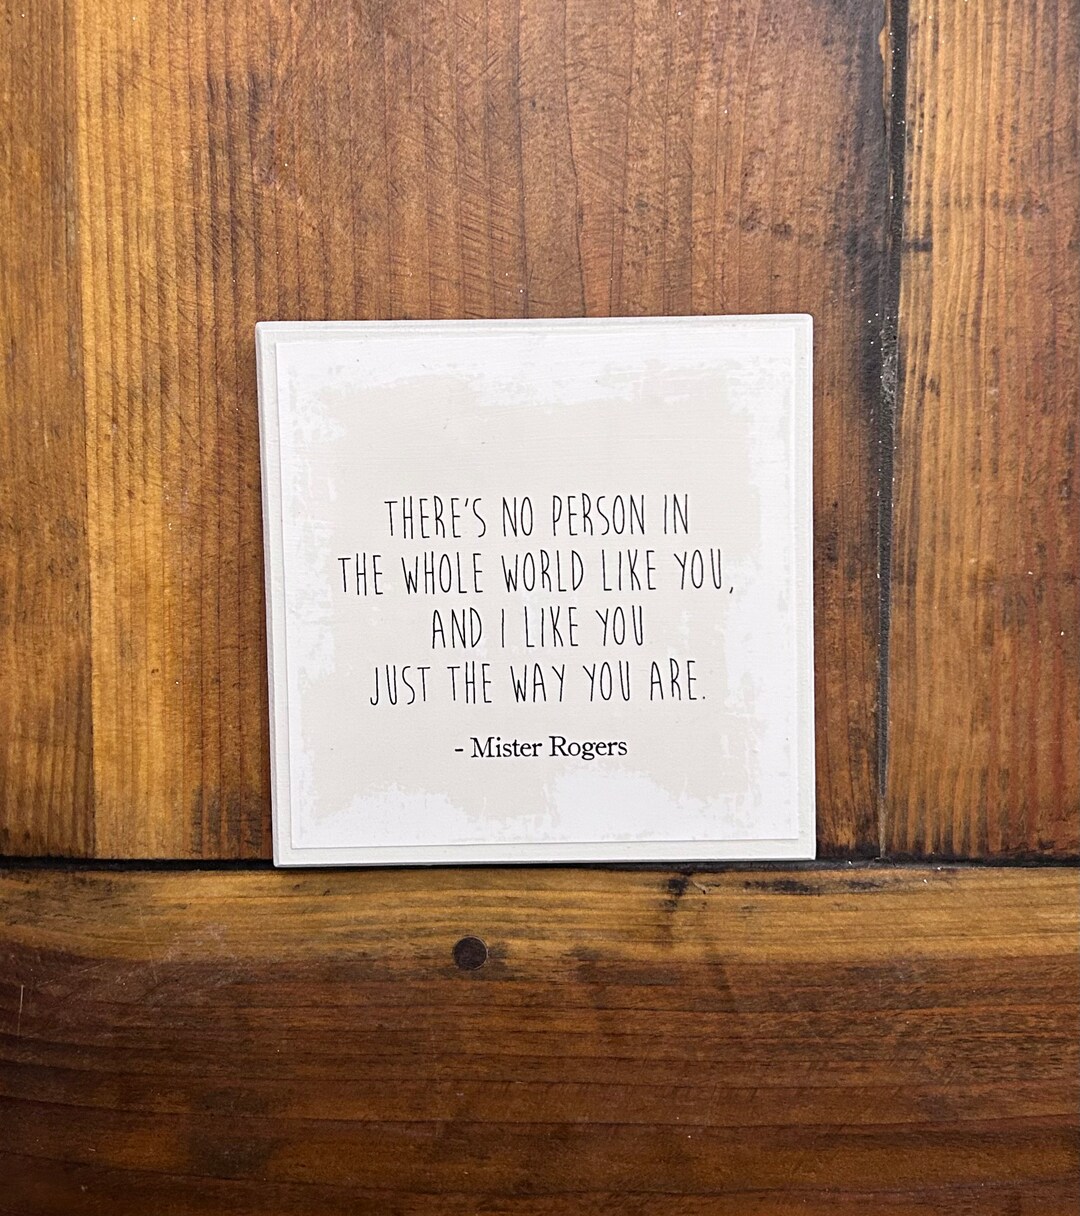 THERE'S NO PERSON IN
THE WHOLE WORLD LIKE YOU,
AND I LIKE YOU
JUST THE WAY YOU ARE.
- Mister Rogers